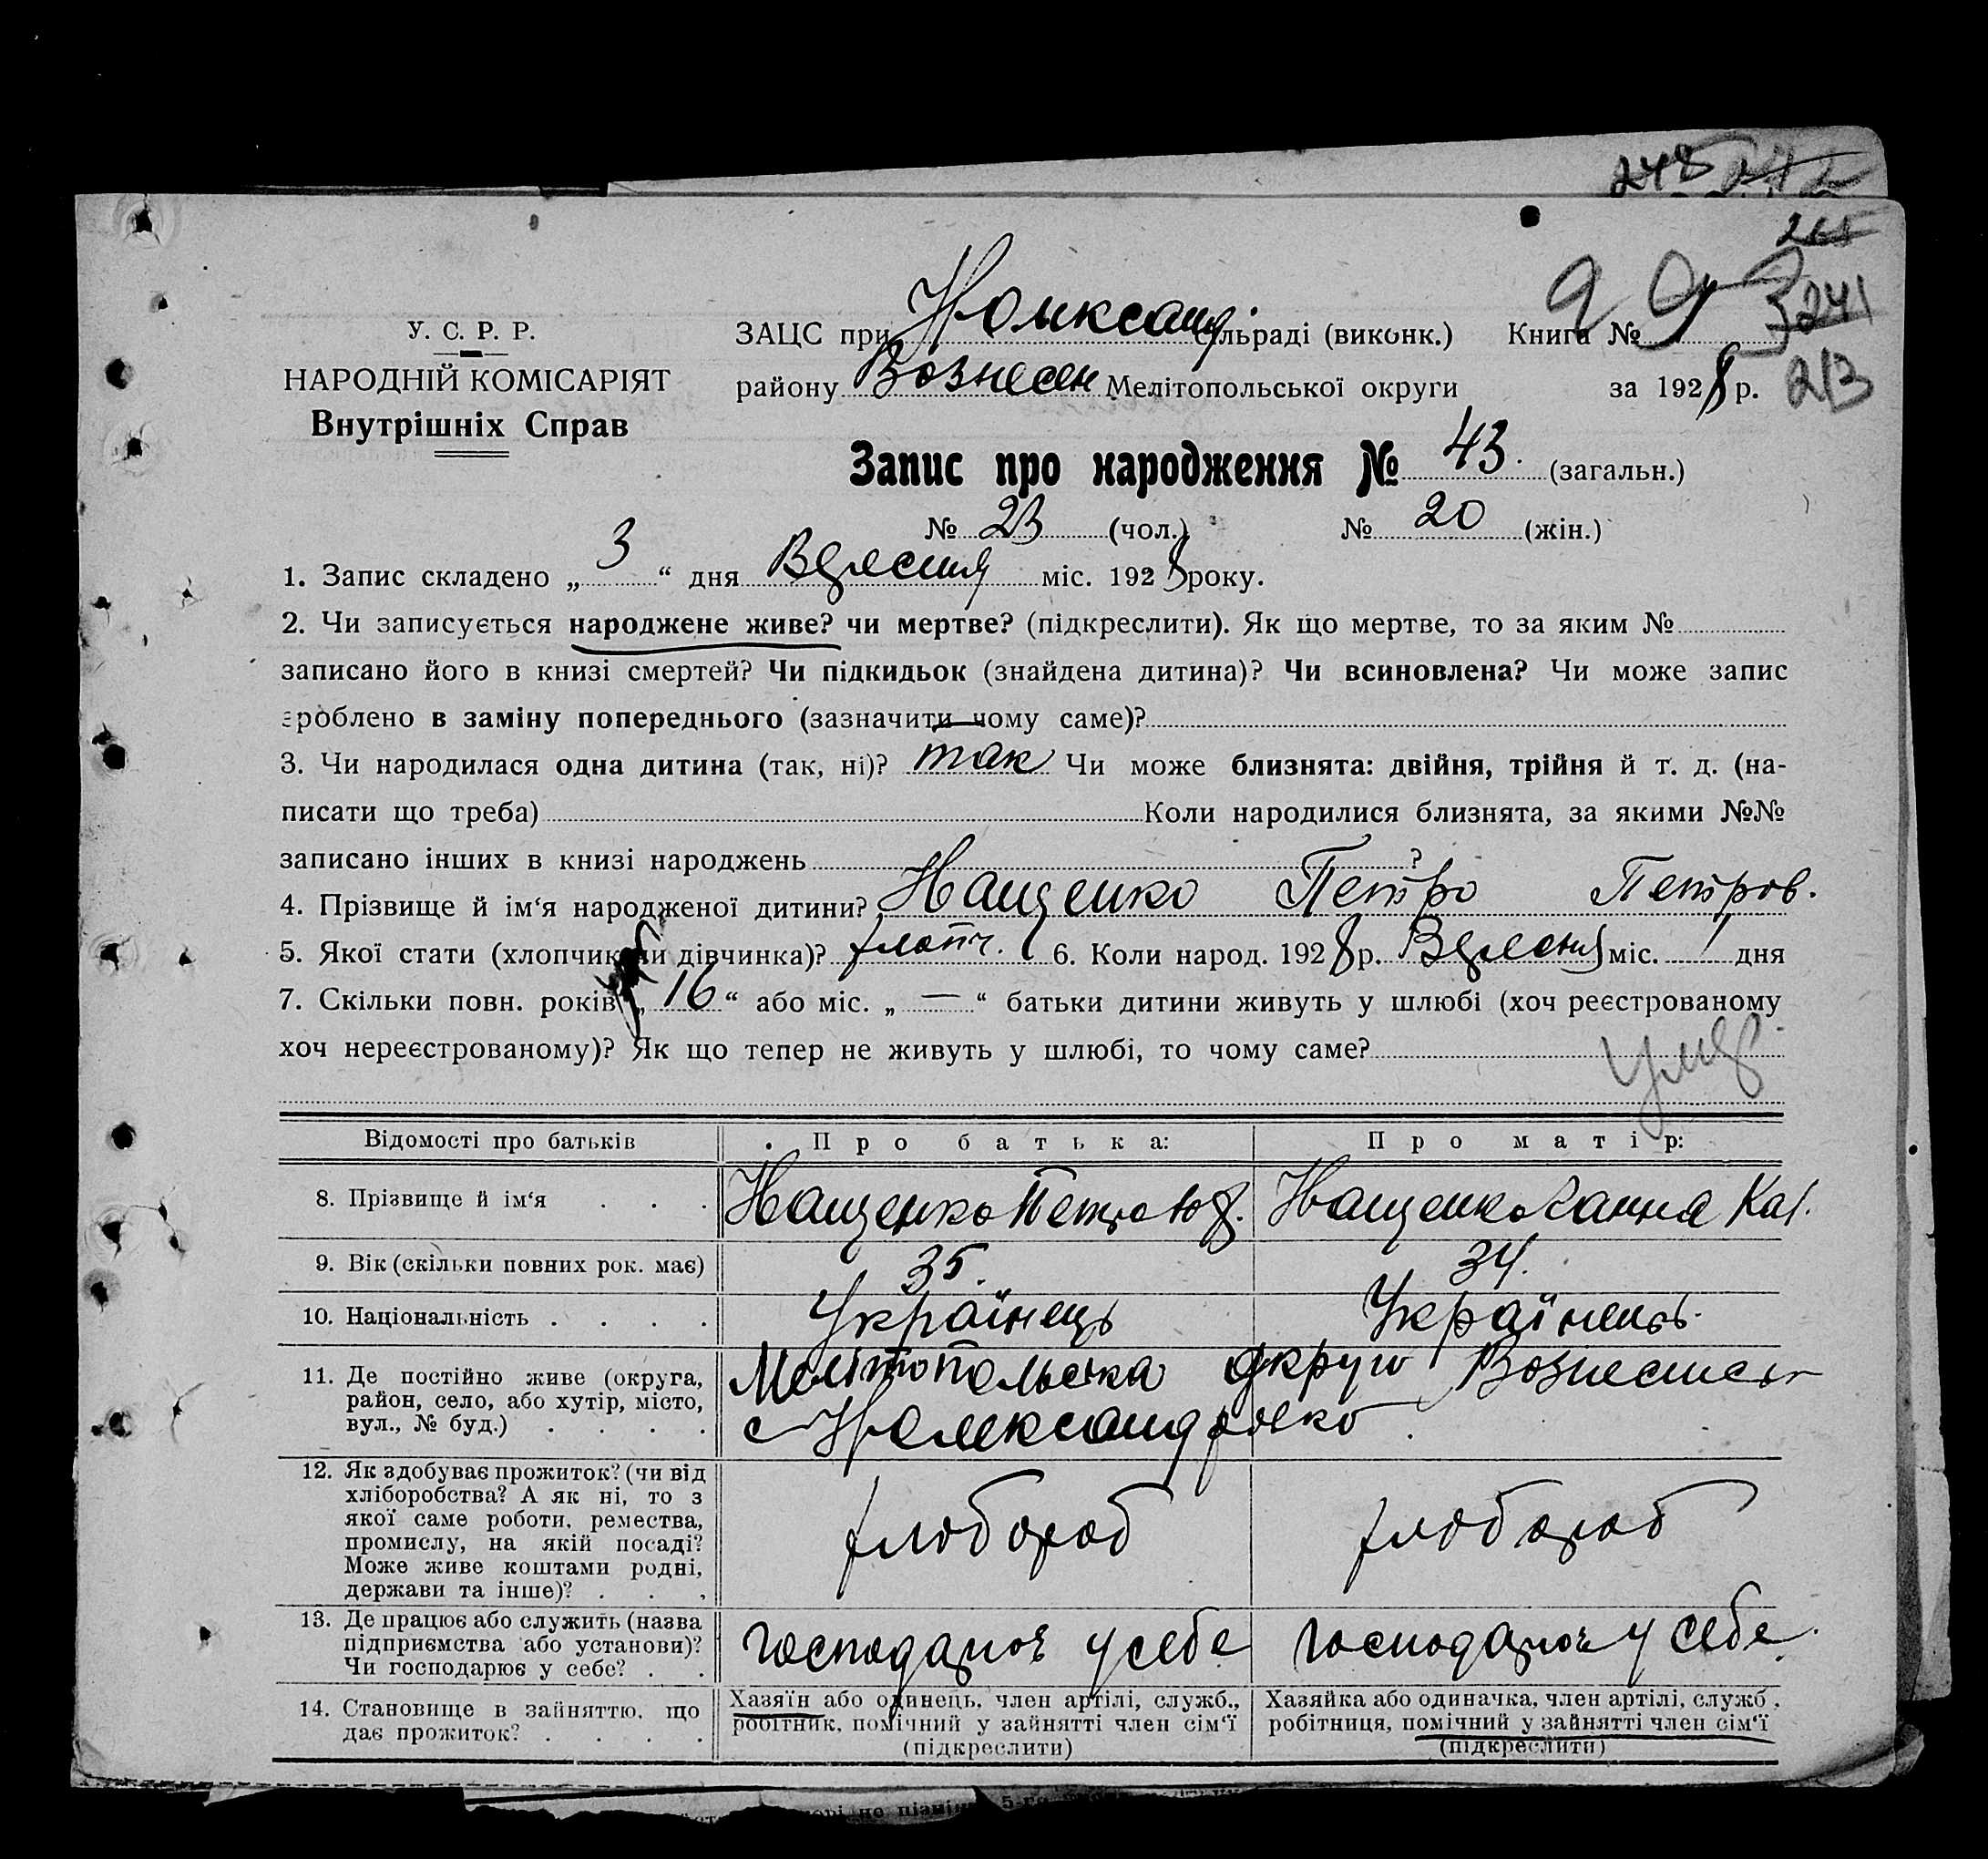 248
265
У. С. Р. Р.
НАРОДНІЙ КОМІСАРІЯТ
Внутрішніх Справ
ЗАЦС при сільраді (виконк.) Книга №
241
району Вознесен Мелітопольської округи за 1928 р.
213
Запис про народження № 43. (загальн.)
№ 23 (чол.) № 20 (жін.)
1. Запис складено „ 3 “ дня Вересня міс. 1928 року.
2. Чи записується народжене живе? чи мертве? (підкреслити). Як що мертве, то за яким №
записано його в книзі смертей? Чи підкидьок (знайдена дитина)? Чи всиновлена? Чи може запис
зроблено в заміну попереднього (зазначити чому саме)?
3. Чи народилася одна дитина (так, ні)? так Чи може близнята: двійня, трійня й т. д. (на-
писати що треба) Коли народилися близнята, за якими №№
записано інших в книзі народжень ?
4. Прізвище й ім‘я народженої дитини? Нащенко Петро Петров.
5. Якої стати (хлопчик чи дівчинка)? хлопч. 6. Коли народ. 1928 р. Вересня міс. 1 дня
7. Скільки повн. років „ 16 “ або міс. „ — “ батьки дитини живуть у шлюбі (хоч реєстрованому
хоч нереєстрованому)? Як що тепер не живуть у шлюбі, то чому саме?
Відомості про батьків Про батька: Про матір:
8. Прізвище й ім‘я . . . Нащенко Петро Нащенко Ганна
9. Вік (скільки повних рок. має) 35. 34.
10. Національність . . . . Українець Українець.
11. Де постійно живе (округа, район, село, або хутір, місто, вул., № буд.) . . . .
Мелітопольська округо Вознесенськ
с Нолександровко
12. Як здобуває прожиток? (чи від
хліборобства? А як ні, то з
якої саме роботи, ремества,
промислу, на якій посаді?
Може живе коштами родні,
держави та інше)? . . .
хлібороб хлібороб
13. Де працює або служить (назва
підприємства або установи)?
Чи господарює у себе? . .
господарює у себе господарює у себе.
14. Становище в зайняттю, що
дає прожиток? . . . .
Хазяїн або одинець, член артілі, служб.,
робітник, помічний у зайнятті член сім‘ї
(підкреслити)
Хазяйка або одиначка, член артілі, служб.,
робітниця, помічний у зайнятті член сім‘ї
(підкреслити)